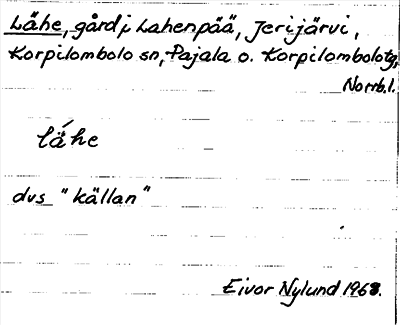 Lähe, gård i Lahenpää, Jerijärvi,
Korpilombolo sn, Pajala o. Korpilombolo tg,
Norrb.l.
lä́he
dvs "källan"
Eivor Nylund 1968.